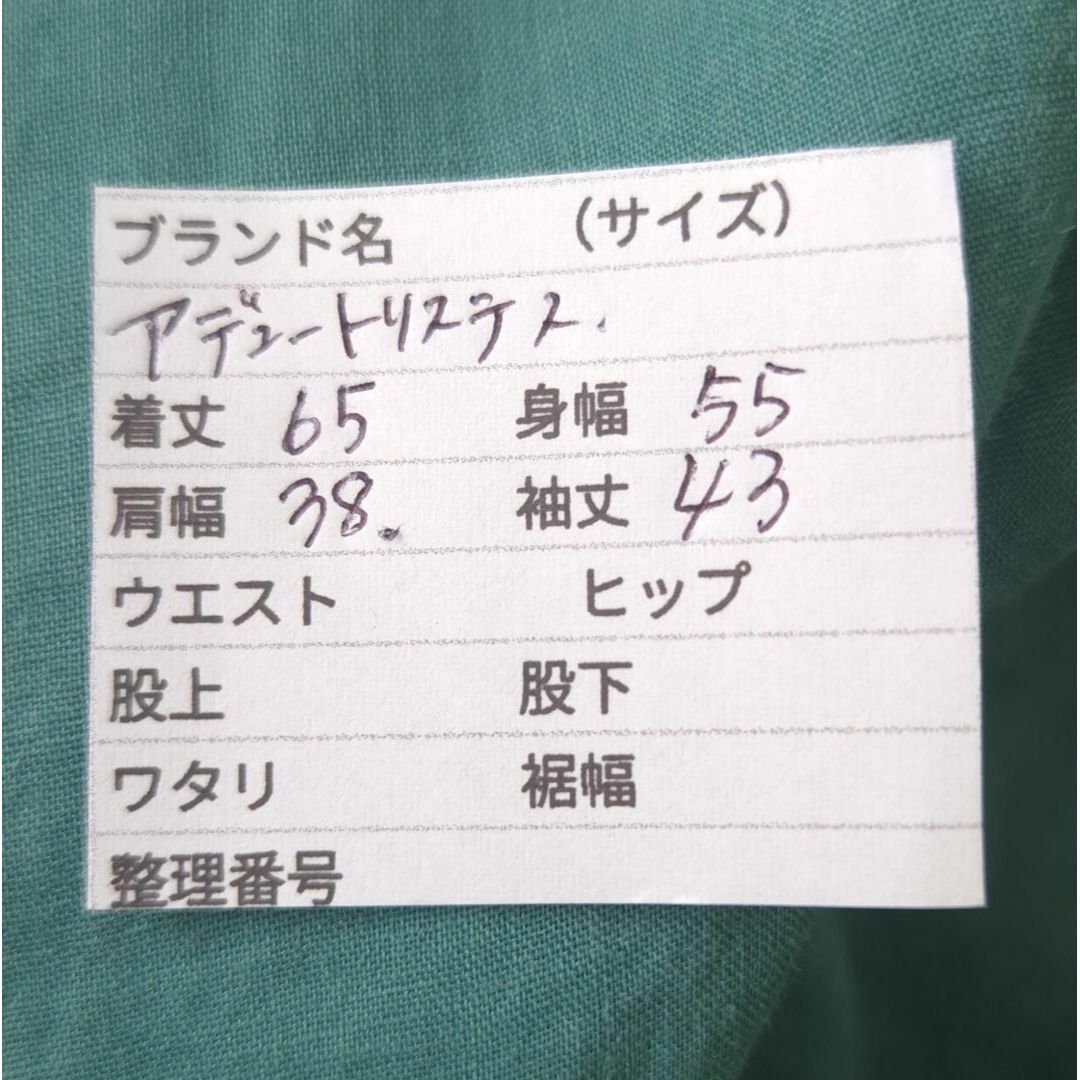 ブランド名 (サイズ)
アデュートリステス.
着丈 65 身幅 55
肩幅 38. 袖丈 43
ウエスト ヒップ
股上 股下
ワタリ 裾幅
整理番号